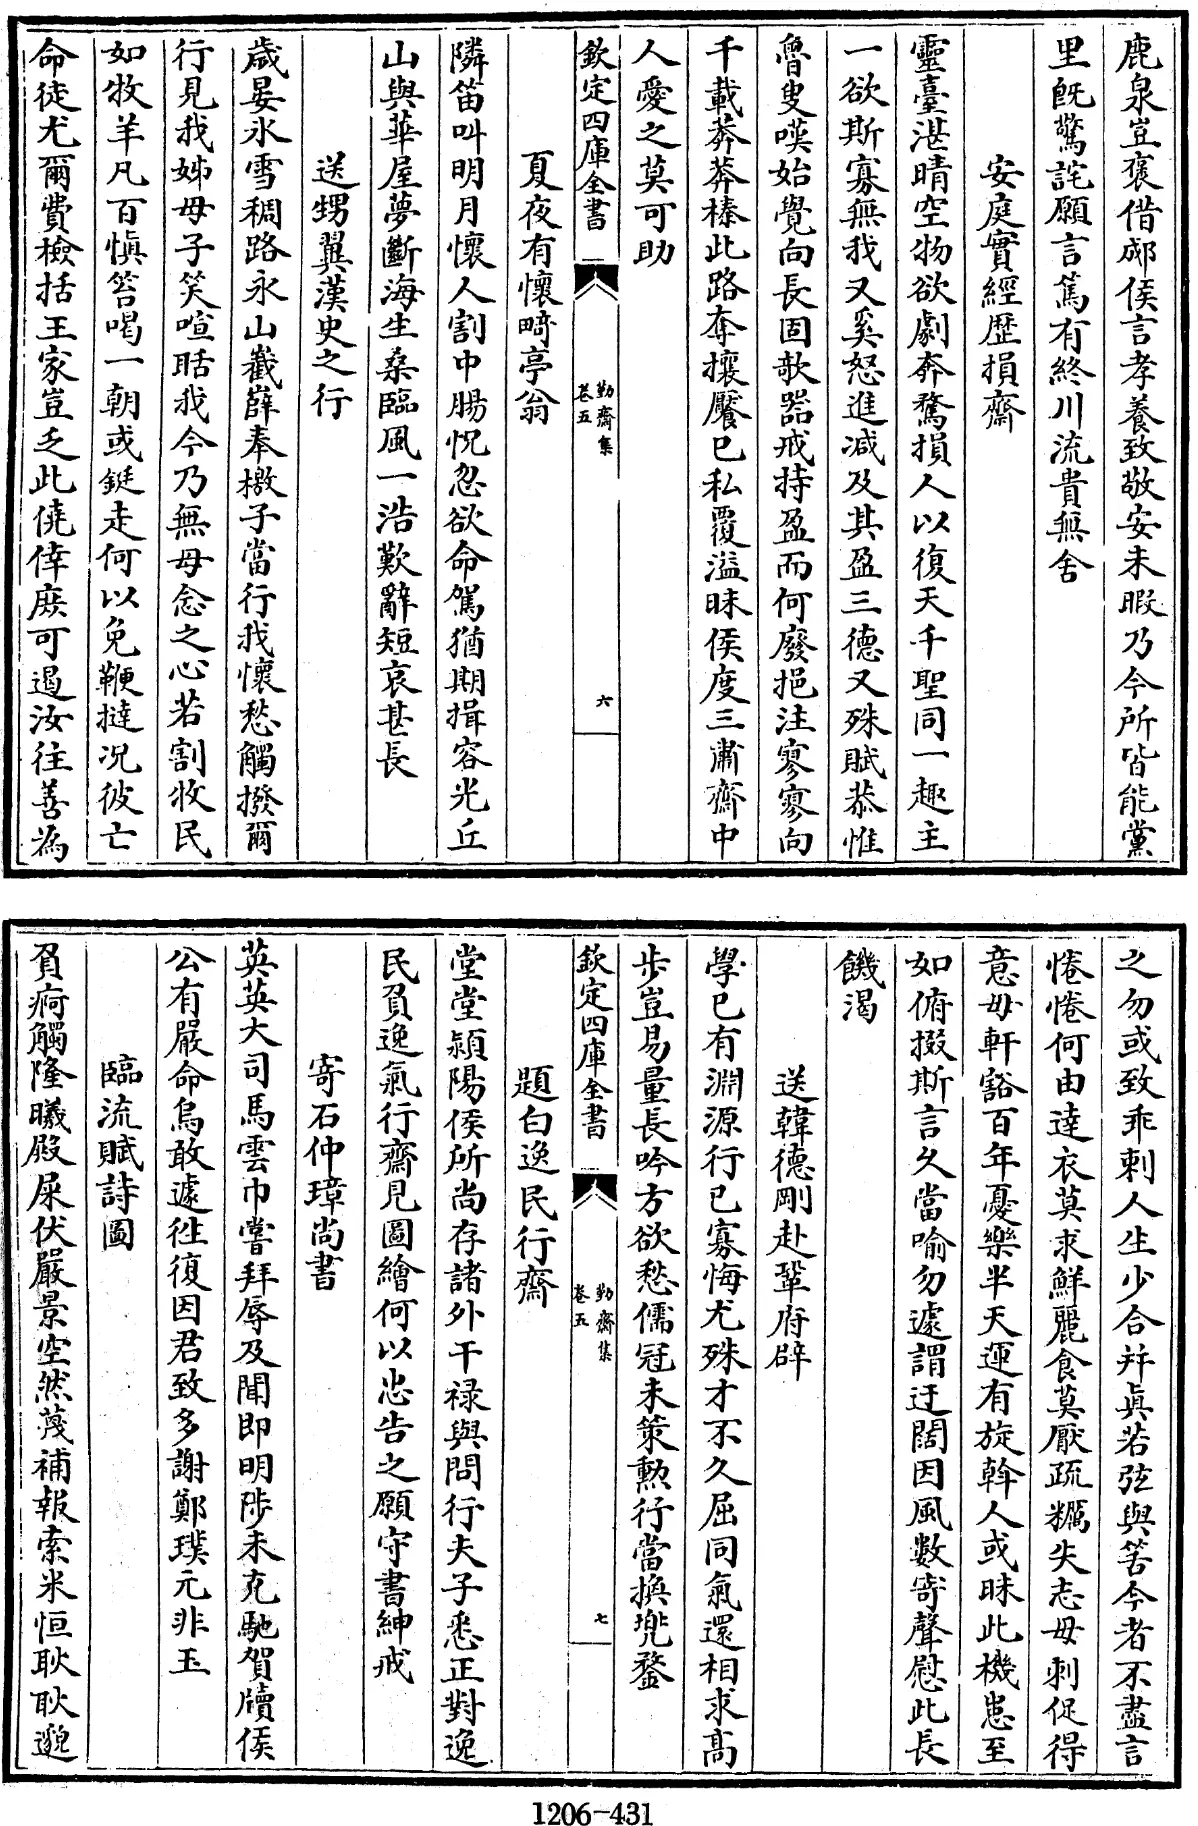 鹿泉豈褒借郕侯言孝養致敬安未暇乃今所皆能黨
里既驚詫願言篤有終川流貴無舍
安庭實經歴損齋
靈臺湛晴空物欲劇奔騖損人以復天千聖同一趣主
一欲斯寡無我又奚怒進減及其盈三德又殊賦恭惟
魯叟嘆始覺向長固欹器戒持盈而何廢挹注寥寥向
千載莽莽榛此路奪攘饜已私覆溢昧侯度三肅齋中
人愛之莫可助
欽定四庫全書
勤齋集
卷五
六
夏夜有懷畸亭翁
隣笛叫明月懷人割中腸怳忽欲命駕猶期揖容光丘
山與華屋夢斷海生桑臨風一浩歎辭短哀甚長
送甥翼漢史之行
歳晏氷雪稠路永山巀嶭奉檄子當行我懷愁觸撥爾
行見我姊母子笑喧聒我今乃無母念之心若割牧民
如牧羊凡百慎笞喝一朝或鋌走何以免鞭撻况彼亡
命徒尤爾費檢括王家豈乏此僥倖庶可遏汝往善為
之勿或致乖剌人生少合并眞若弦與筈今者不盡言
惓惓何由達衣莫求鮮麗食莫厭疏糲失志毋刺促得
意毋軒豁百年憂樂半天運有旋斡人或昧此機患至
如俯掇斯言久當喻勿遽謂迂闊因風數寄聲慰此長
饑渴
送韓德剛赴鞏府辟
學已有淵源行已寡悔尤殊才不久屈同氣還相求高
步豈易量長吟方欲愁儒冠未策勲行當換兜鍪
欽定四庫全書
勤齋集
卷五
七
題白逸民行齋
堂堂潁陽侯所尚存諸外干祿與問行夫子悉正對逸
民負逸氣行齋見圖繪何以忠告之願守書紳戒
寄石仲璋尚書
英英大司馬雲巾嘗拜辱及聞即明陟未克馳賀牘侯
公有嚴命烏敢遽徃復因君致多謝鄭璞元非玉
臨流賦詩圖
負痾觸隆曦殿屎伏嚴景空然蔑補報索米恒耿耿邈
1206-431